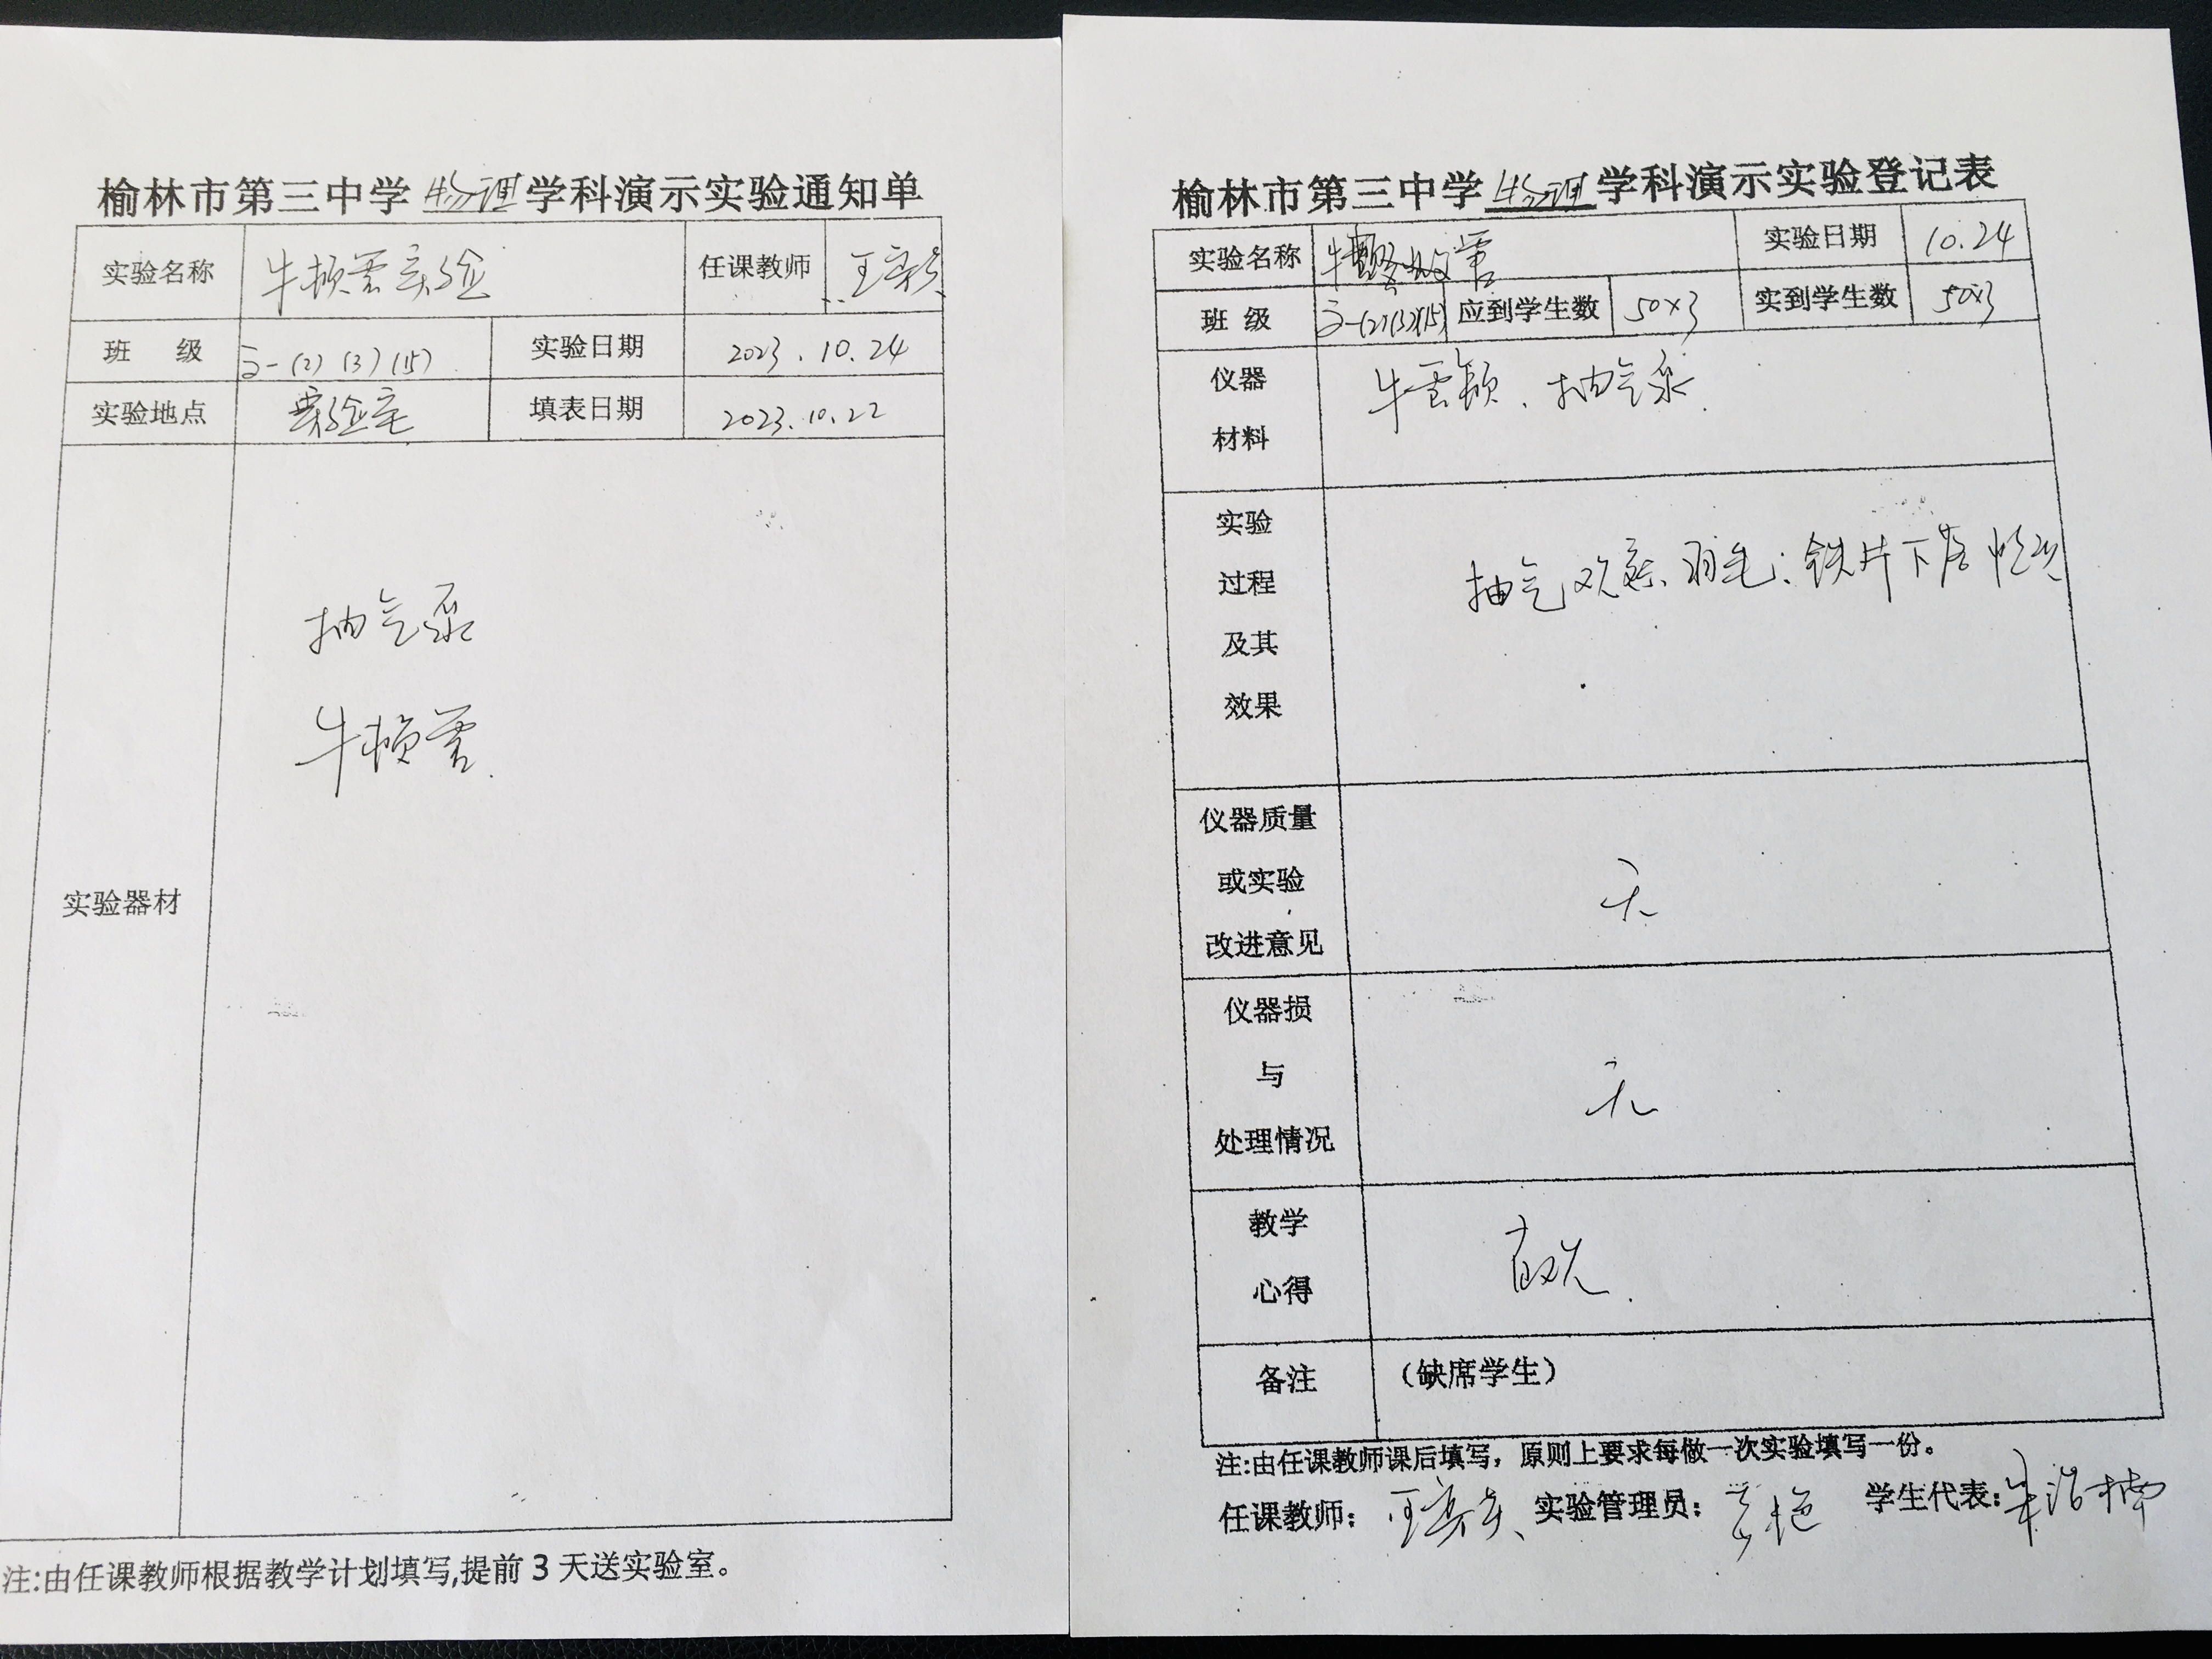 榆林市第三中学物理学科演示实验通知单
实验名称 牛顿管实验 任课教师
班 级 高一(2)(3)(15) 实验日期 2023.10.24
实验地点 实验室 填表日期 2023.10.22
抽气泵
牛顿管
实验器材
注:由任课教师根据教学计划填写,提前3天送实验室。
榆林市第三中学物理学科演示实验登记表
实验名称 牛顿管 实验日期 10.24
班 级 高一(2)(3)(15) 应到学生数 50×3 实到学生数 50×3
仪器
材料
牛管顿、抽气泵
实验
过程
及其
效果
抽气观察羽毛:铁片下落情况
仪器质量
或实验
改进意见
无
仪器损
与
处理情况
无
教学
心得
直观
备注 (缺席学生)
注:由任课教师课后填写，原则上要求每做一次实验填写一份。
任课教师: 实验管理员: 学生代表: